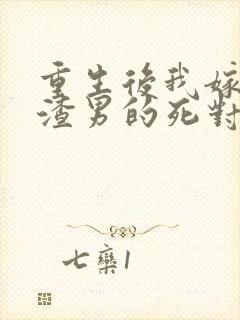 重生後我嫁
渣男的死對
七欒1